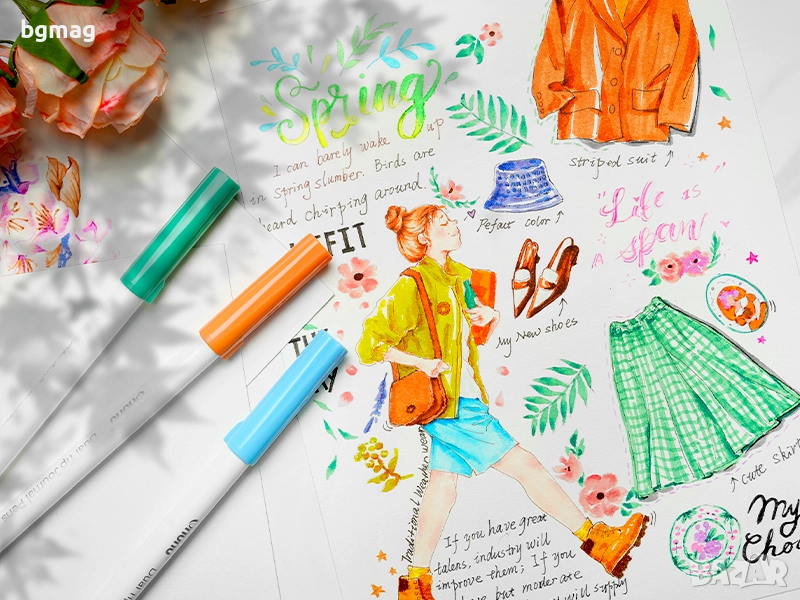 bgmag
Spring
I can barely wake up
in spring slumber. Birds are
heard chirping around
striped suit ↑
Pefact color ↑
"Life is
span!
My New shoes
↑ cute skirt
My
Choi
Traditional Weather wear
If you have great
talens, industry will
improve them; If you
have but moderate
will supply
Ohuhu
Dual tip Journal Pens
Ohuhu
Dual
BAZAR